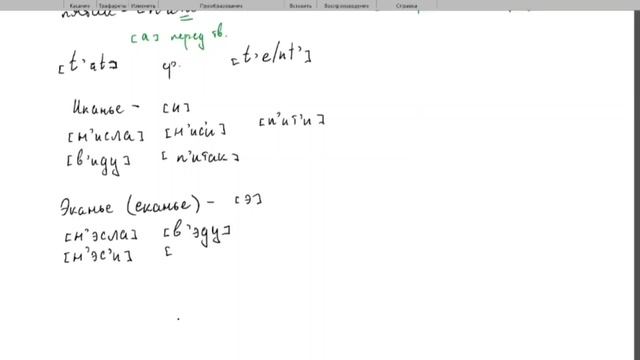 Касание Трафареты Изменить Преобразования Вставить Воспроизведение Справка
[а] перед тв.
[t'at] ср. [t'e/nt']
Иканье – [и]
[н'исла] [н'иси] [п'ит'и]
[в'иду] [п'итак]
Эканье (еканье) – [э]
[н'эсла] [в'эду]
[н'эс'и] [